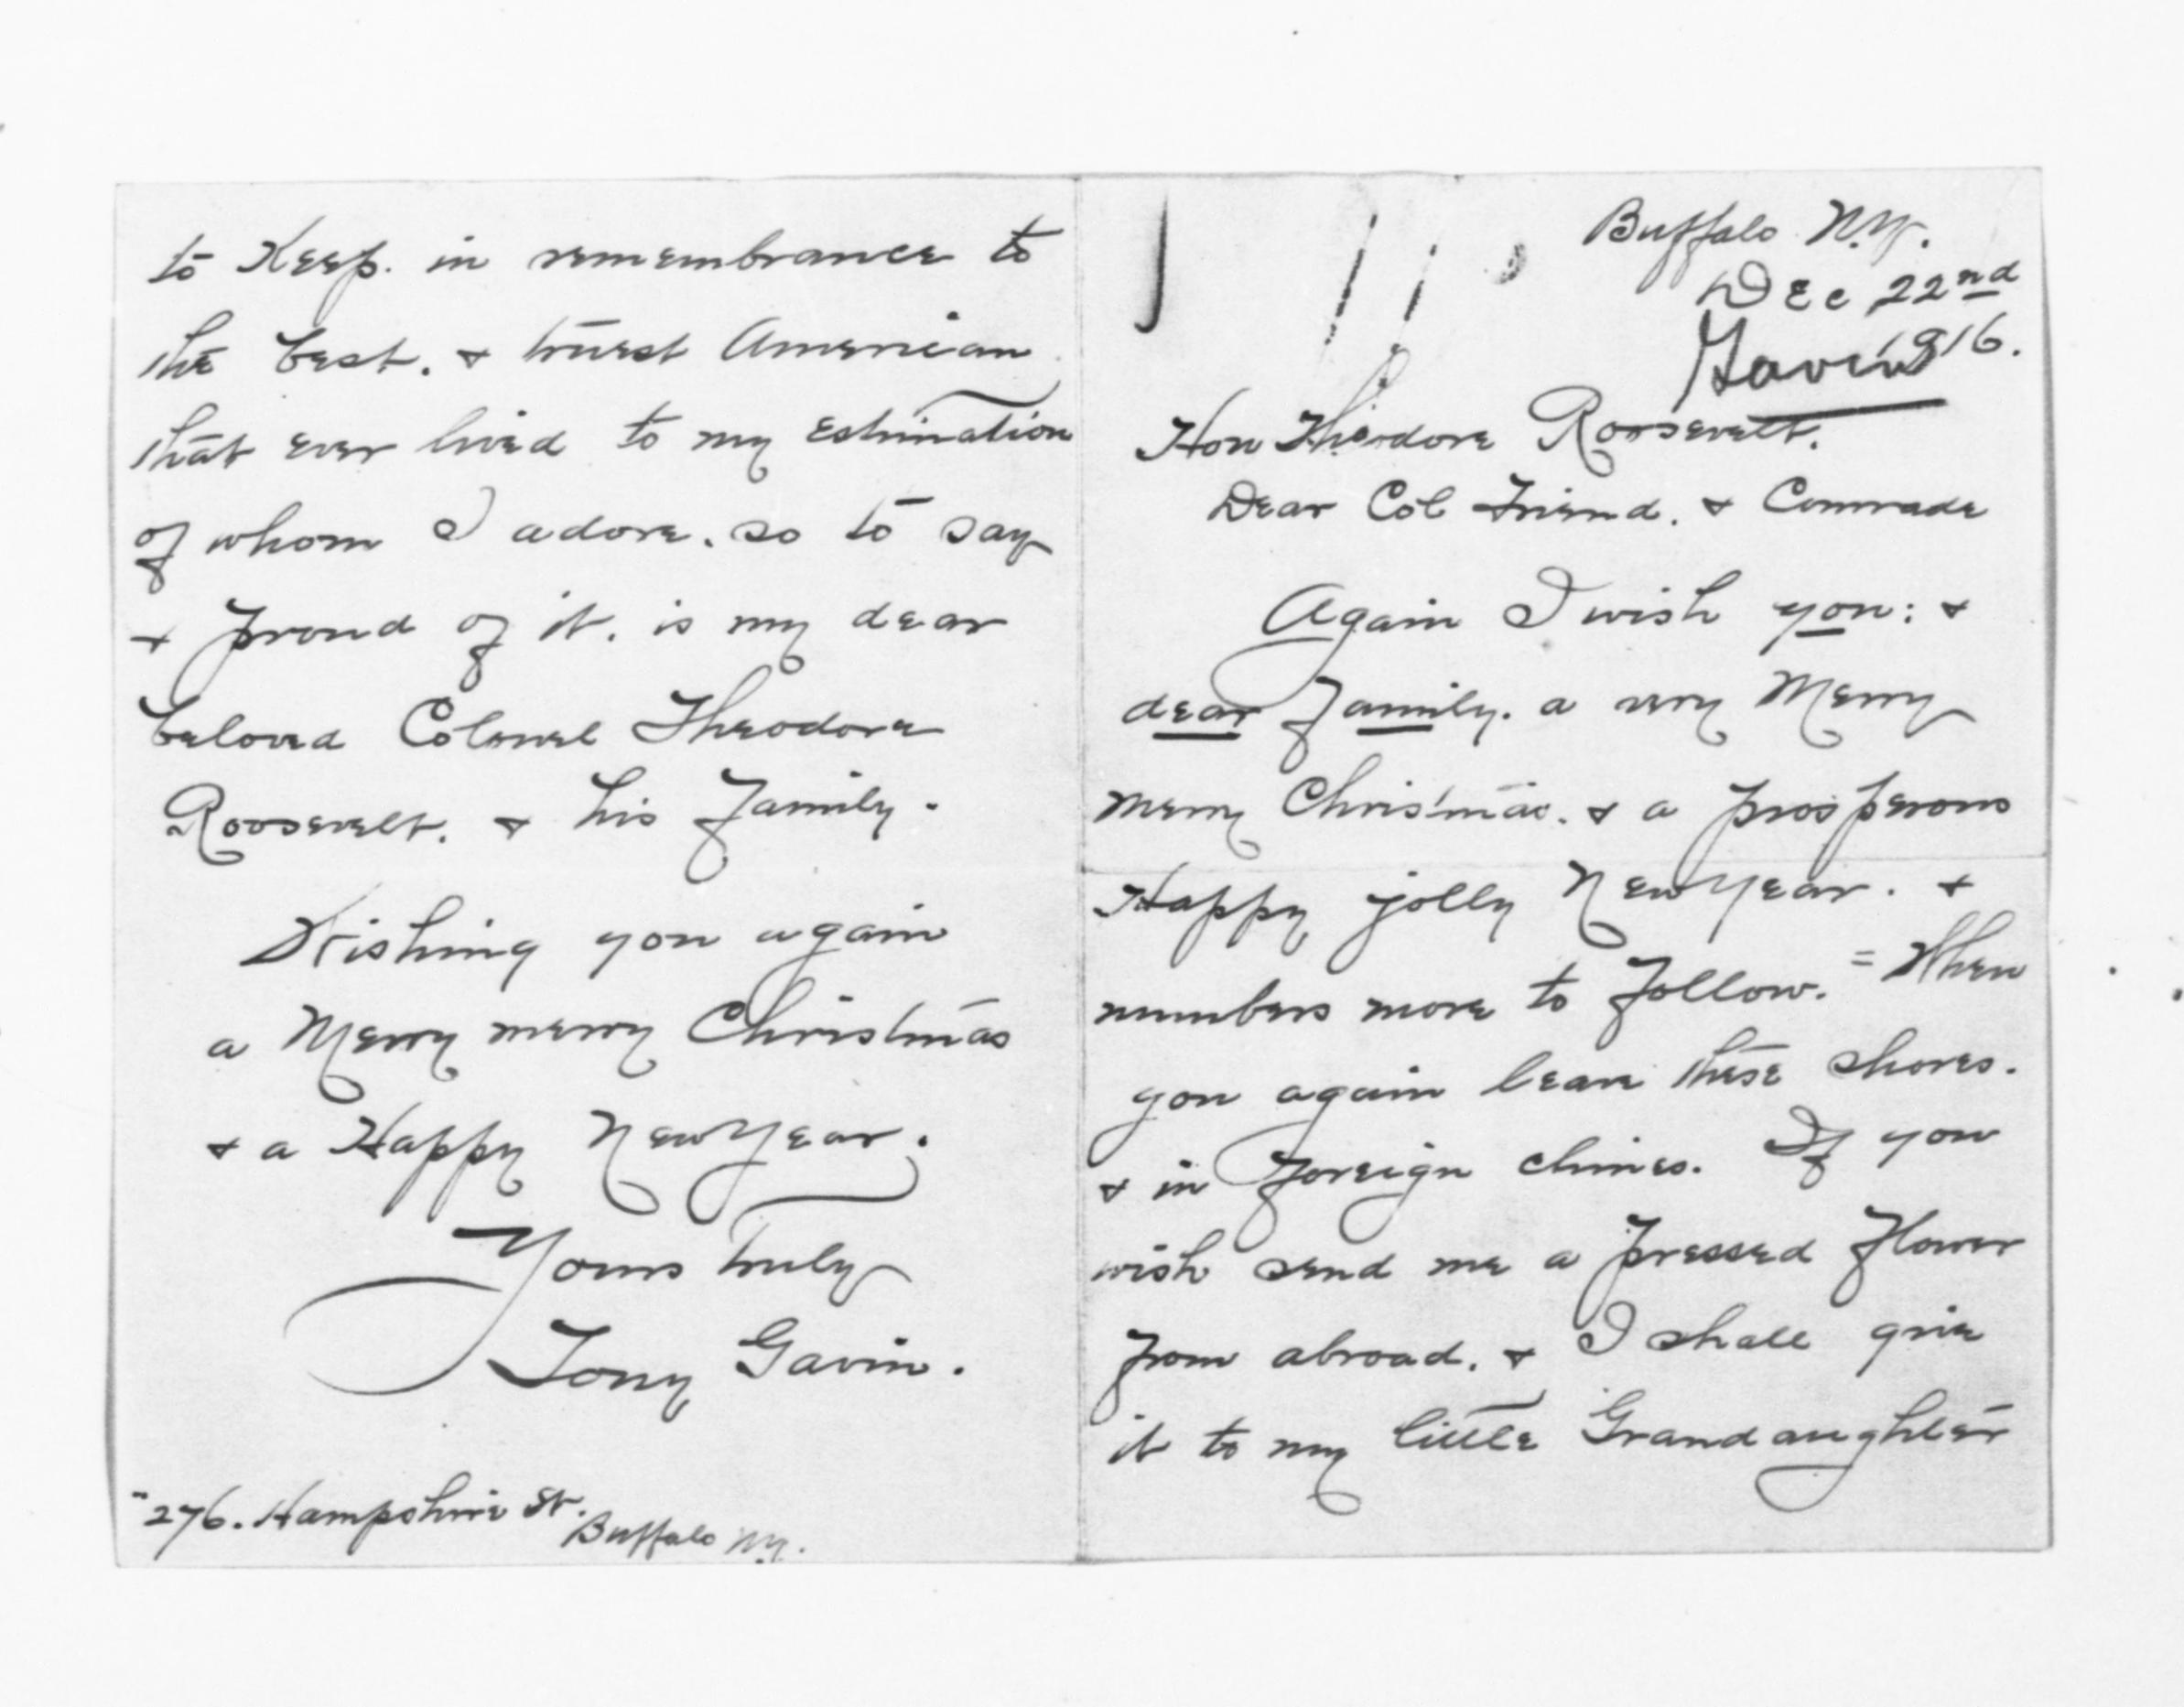 Buffalo N.Y.
Dec 22nd
1916.
Gavin
Hon Theodore Roosevelt.
Dear Col Friend. & Comrade
Again I wish you: &
dear Family. a very Merry
merry Christmas. & a prosperous
Happy jolly New Year. &
numbers more to Follow. = When
you again leave these shores.
& in Foreign climes. If you
wish send me a Pressed Flower
From abroad. & I shall give
it to my little Grandaughter
to Keep. in remembrance to
the best. & truest American
that ever lived to my Estimation
of whom I adore. so to say
& Proud of it. is my dear
beloved Colonel Theodore
Roosevelt. & his Family.
Wishing you again
a Merry merry Christmas
& a Happy New Year.
Yours truly
Tony Gavin.
"276. Hampshire St.
Buffalo N.Y.